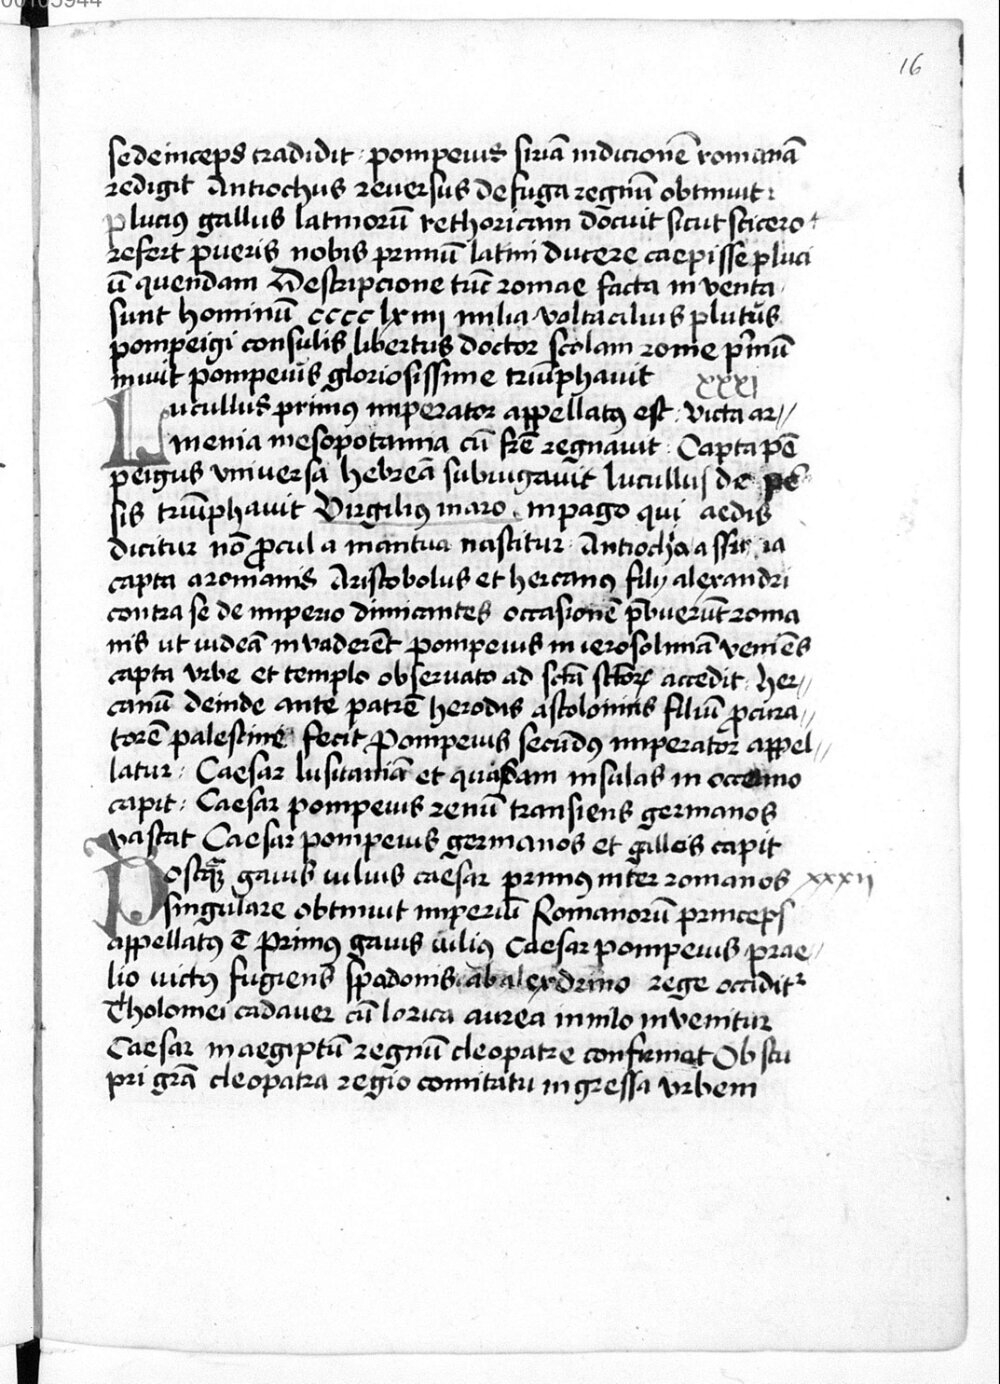 00105944
16
se deinceps tradidit · pompeius siriā indicionē romanā
redigit Antiochus reuersus de fuga regnū obtinuit :
plucius gallus latinorū rethoricam docuit sicut scicero
refert pueris nobis primū latini ducere caepisse pluci
ū quendam Descripcione tūc romae facta inventa
sunt hominū cccc lxiiii milia voltacilius plutus
pompeigi consulis libertus doctor scolam rome pⁱmū
inuit pompeius gloriosissime triūphauit xxxi
Lucullus primꝰ imperator appellatꝰ est : victa ar//
menia mesopotamia cū frē regnauit : Capta pē
peigus universā hebreā subiugauit lucullus de pe
sis triūphauit Virgiliꝰ maro in pago qui aedis
dicitur nō ꝓcul a mantua nascitur · Antiochia assiria
capta a romanis Aristobolus et hercanꝰ filij alexandri
contra se de imperio dimicantes occasionē p̄buerūt roma
nis ut iudeā invaderēt pompeius in ierosolimā veniēs
capta vrbe et templo observato ad sctā sctorꝝ accedit : her//
canū deinde ante patrē herodis ascolonitis filiū ꝓcura//
torē palestine fecit Pompeius secūdꝰ imperator appel//
latur : Caesar lusitaniā et quasdam insulas in occeano
capit : Caesar pompeius renū transiens germanos
vastat Caesar pompeius germanos et galleis capit
Postqꝫ gaius iulius caesar primꝰ inter romanos xxxii
singulare obtinuit imperiū Romanorū princeps
appellatꝰ ē Primꝰ gaius iuliꝰ Caesar pompeius prae/
lio victꝰ fugiens spadonis ab alexdrino rege occiditʳ
Tholomei cadaver cū lorica aurea in nilo invenitur
Caesar in aegiptū regnū cleopatre confirmat Ob stu
pri grā cleopatra regio comitatu ingressa vrbem